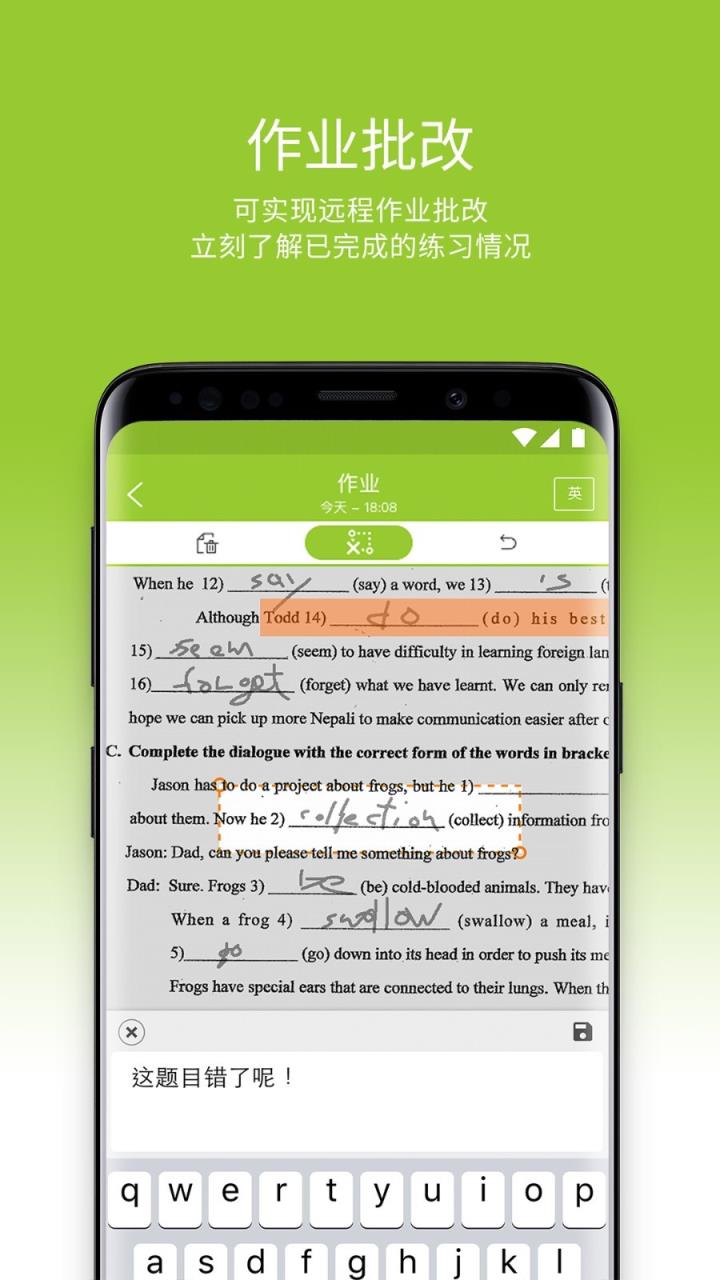 作业批改
可实现远程作业批改
立刻了解已完成的练习情况
作业
今天 – 18:08
英
When he 12) say (say) a word, we 13) 's (t
Although Todd 14) do (do) his best
15) seem (seem) to have difficulty in learning foreign lan
16) forget (forget) what we have learnt. We can only rer
hope we can pick up more Nepali to make communication easier after c
C. Complete the dialogue with the correct form of the words in bracke
Jason has to do a project about frogs, but he 1)
about them. Now he 2) collection (collect) information fro
Jason: Dad, can you please tell me something about frogs?
Dad: Sure. Frogs 3) be (be) cold-blooded animals. They have
When a frog 4) swallow (swallow) a meal, i
5) go (go) down into its head in order to push its me
Frogs have special ears that are connected to their lungs. When th
这题目错了呢！
q w e r t y u i o p
a s d f g h j k l